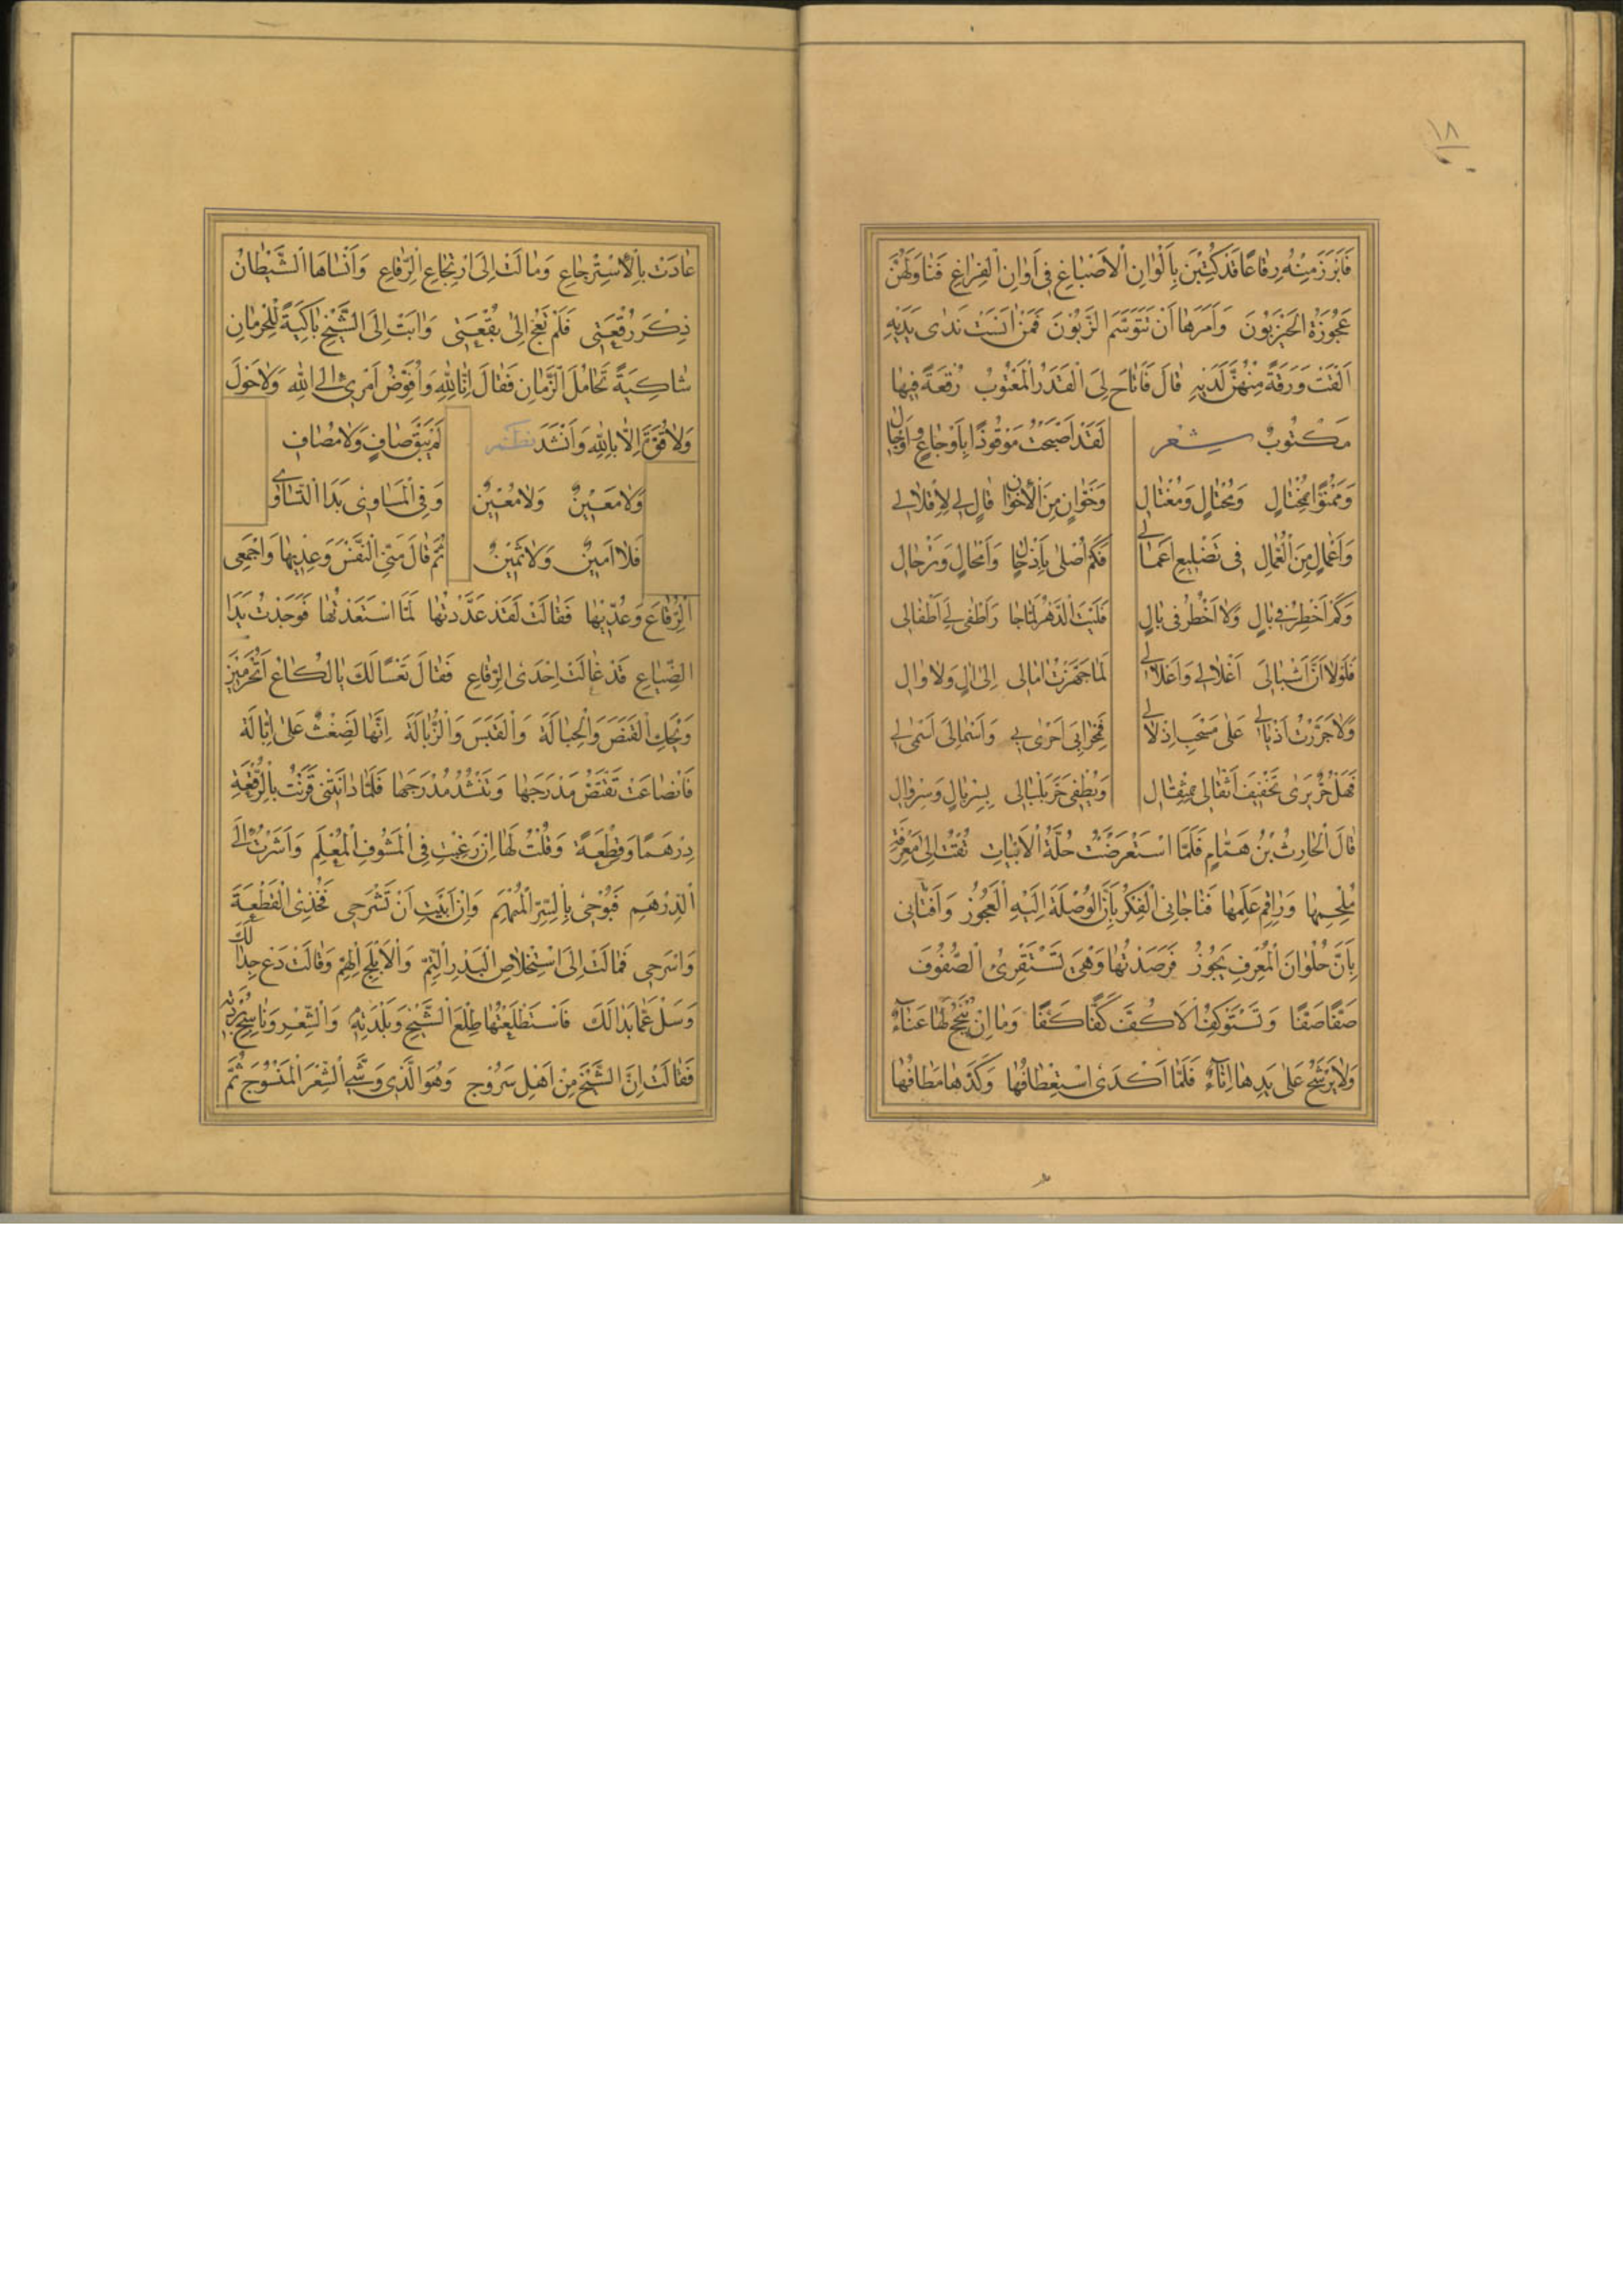 ١٨
فَاَبْرَزَ مِنْهُ رِقَاعًا قَدْ كُتِبْنَ بِاَلْوَانِ الْاَصْبَاغِ فِى اَوَانِ الْفِرَاغِ فَنَاوَلَهُنَّ
عَجُوزَهُ الْحَيْزَبُونَ وَاَمَرَهَا اَنْ تَتَوَسَّمَ الزَّبُونَ فَمَنْ اٰنَسَتْ نَدٰى يَدَيْهِ
اَلْقَتْ وَرَقَةً مِنْهُنَّ لَدَيْهِ قَالَ فَاَتَاحَ لِىَ الْقَدَرُ الْمَعْتُوبُ رُقْعَةً فِيهَا
مَكْتُوبٌ شعر لَقَدْ اَصْبَحْتُ مَوْقُوذًا بِاَوْجَاعٍ وَاَوْجَالِ
وَمَمْنُوًّا بِمُخْتَالٍ وَمُحْتَالٍ وَمُغْتَالِ وَخَوَّانٍ مِنَ الْاِخْوَانِ قَالٍ لِى لِاِقْلَالِى
وَاِعْمَالٍ مِنَ الْعُمَّالِ فِى تَضْلِيعِ اَعْمَالِى فَكَمْ اُصْلٰى بِاَذْحَالٍ وَاَمْحَالٍ وَتَرْحَالِ
وَكَمْ اَخْطِرُ فِى بَالٍ وَلَا اَخْطُرُ فِى بَالِ فَلَيْتَ الدَّهْرَ لَمَّا جَارَ اَطْفٰى لِى اَطْفَالِى
فَلَوْلَا اَنَّ اَشْبَالِى اَغْلَالِى وَاَعْلَالِى لَمَا جَهَّزْتُ اٰمَالِى اِلٰى اٰلٍ وَلَا وَالِ
وَلَا جَرَّرْتُ اَذْيَالِى عَلٰى مَسْحَبِ اِذْلَالِى فَمِحْرَابِىَ اَحْرٰى بِى وَاَسْمَالِىَ اَسْمٰى لِى
فَهَلْ حُرٌّ يَرٰى تَخْفِيفَ اَثْقَالِى بِمِثْقَالِ وَيُطْفِى حَرَّ بَلْبَالِى بِسِرْبَالٍ وَسِرْوَالِ
قَالَ الْحَارِثُ بْنُ هَمَّامٍ فَلَمَّا اسْتَعْرَضْتُ حُلَّةَ الْاَبْيَاتِ تُقْتُ اِلٰى مَعْرِفَةِ
مُلْحِمِهَا وَرَاقِمِ عَلَمِهَا فَنَاجَانِى الْفِكْرُ بِاَنَّ الْوُصْلَةَ اِلَيْهِ الْعَجُوزُ وَاَفْتَانِى
بِاَنَّ حُلْوَانَ الْمُعَرِّفِ يَجُوزُ فَرَصَدْتُهَا وَهِىَ تَسْتَقْرِئُ الصُّفُوفَ
صَفًّا صَفًّا وَتَسْتَوْكِفُ الْاَكُفَّ كَفًّا كَفًّا وَمَا اِنْ يُنْجِحُ لَهَا عَنَاءٌ
وَلَا يَرْشَحُ عَلٰى يَدِهَا اِنَاءٌ فَلَمَّا اَكْدَى اسْتِعْطَافُهَا وَكَدَّهَا مَطَافُهَا
عَاذَتْ بِالْاِسْتِرْجَاعِ وَمَالَتْ اِلٰى اِرْتِجَاعِ الرِّقَاعِ وَاَنْسَاهَا الشَّيْطَانُ
ذِكْرَ رُقْعَتِى فَلَمْ تَعُجْ اِلٰى بُقْعَتِى وَاٰبَتْ اِلَى الشَّيْخِ بَاكِيَةً لِلْحِرْمَانِ
شَاكِيَةً تَحَامُلَ الزَّمَانِ فَقَالَ اِنَّا لِلّٰهِ وَاُفَوِّضُ اَمْرِى اِلَى اللّٰهِ وَلَا حَوْلَ
وَلَا قُوَّةَ اِلَّا بِاللّٰهِ وَاَنْشَدَ نظم لَمْ يَبْقَ صَافٍ وَلَا مُصَافٍ
وَلَا مَعِينٌ وَلَا مُعِينٌ وَفِى الْمَسَاوِى بَدَا التَّسَاوِى
فَلَا اَمِينٌ وَلَا ثَمِينٌ ثُمَّ قَالَ مَنِّى النَّفْسَ وَعِدِيهَا وَاجْمَعِى
الرِّقَاعَ وَعُدِّيهَا فَقَالَتْ لَقَدْ عَدَدْتُهَا لَمَّا اسْتَعَدْتُهَا فَوَجَدْتُ يَدَ
الضِّيَاعِ قَدْ غَالَتْ اِحْدَى الرِّقَاعِ فَقَالَ تَعْسًا لَكِ يَا لَكَاعِ اَنُحْرَمُ
وَيْحَكِ الْقَنَصَ وَالْحِبَالَةَ وَالْقَبَسَ وَالذُّبَالَةَ اِنَّهَا لَضِغْثٌ عَلٰى اِبَّالَةٍ
فَانْصَاعَتْ تَقْتَصُّ مَدْرَجَهَا وَتَنْشُدُ مُدْرَجَهَا فَلَمَّا دَانَتْنِى قَرَنْتُ بِالرُّقْعَةِ
دِرْهَمًا وَقِطْعَةً وَقُلْتُ لَهَا اِنْ رَغِبْتِ فِى الْمَشُوفِ الْمُعْلَمِ وَاَشَرْتُ اِلَى
الدِّرْهَمِ فَبُوحِى بِالسِّرِّ الْمُبْهَمِ وَاِنْ اَبَيْتِ اَنْ تَشْرَحِى فَخُذِى الْقِطْعَةَ
وَاسْرَحِى فَمَالَتْ اِلَى اسْتِخْلَاصِ الْبَدْرِ التِّمِّ وَالْاَبْلَجِ الْهِمِّ وَقَالَتْ دَعْ جِدَالَكَ
وَسَلْ عَمَّا بَدَا لَكَ فَاسْتَطْلَعْتُهَا طِلْعَ الشَّيْخِ وَبَلْدَتِهِ وَالشِّعْرِ وَنَاسِجِ بُرْدَتِهِ
فَقَالَتْ اِنَّ الشَّيْخَ مِنْ اَهْلِ سَرُوجَ وَهُوَ الَّذِى وَشَّى الشِّعْرَ الْمَنْسُوجَ ثُمَّ